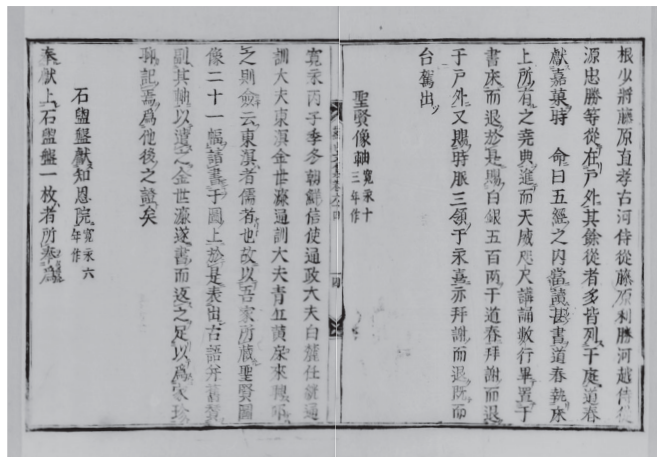 根少將藤原直孝右河侍從藤原利勝河越侍從
源忠勝等從在戶外其餘從者多皆列于庭道春
獻嘉菓時 命曰五經之內當讀甚書道春執床
上所有之堯典進而天威咫尺講誦數行畢置于
書床而退於是賜白銀五百兩于道春拜謝而退
于戶外又賜時服三領于永喜亦拜謝而退既而
台駕出
聖賢像軸 寬永十
三年作
寬永丙子季冬朝鮮信使通政大夫白麓任絖通
訓大夫東溟金世濂通訓大夫青丘黃來聘
之則僉云東溟者儒者也故以吾家所藏聖賢圖
像二十一幅請書于圖上於是表出古語并舊贊
副其軸以遺之金世濂遂書而返之足以爲家珍
聊記焉爲他後之證矣
石盥盤獻知恩院 寬永六
年作
奉獻上石盥盤一枚者所奉爲